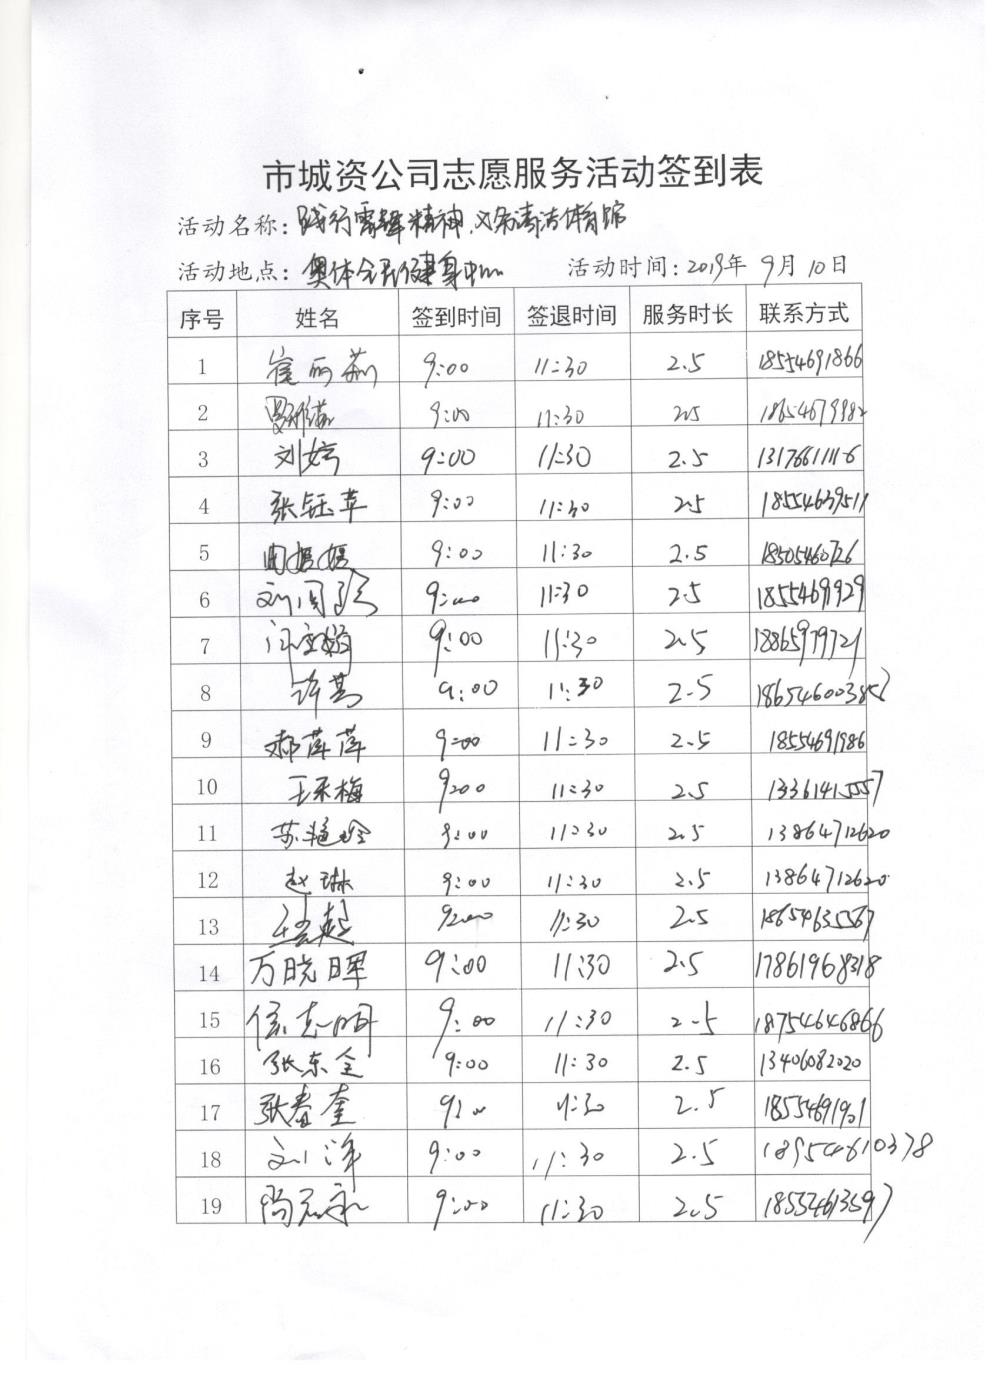 市城资公司志愿服务活动签到表
活动名称：践行雷锋精神，义务清洁体育馆
活动地点：奥体全民健身中心 活动时间：2019年 9月 10日
序号 姓名 签到时间 签退时间 服务时长 联系方式
1 崔丽莉 9:00 11:30 2.5 18554691866
2 9:00 11:30 2.5 18654679982
3 刘婷 9:00 11:30 2.5 13176611116
4 张钰苹 9:00 11:30 2.5 18554639511
5 曲媛媛 9:00 11:30 2.5 18505460726
6 9:00 11:30 2.5 1855469929
7 9:00 11:30 2.5 18865979721
8 9:00 11:30 2.5
9 郝萍萍 9:00 11:30 2.5 18554691986
10 王采梅 9:00 11:30 2.5 13361415557
11 9:00 11:30 2.5 13864712620
12 赵琳 9:00 11:30 2.5 13864712620
13 9:00 11:30 2.5 18654635567
14 万晓晖 9:00 11:30 2.5 17861968318
15 侯志明 9:00 11:30 2.5 18754646866
16 张东全 9:00 11:30 2.5 13406082020
17 张春奎 9:00 11:30 2.5 18554691901
18 刘洋 9:00 11:30 2.5 18954610378
19 尚志永 9:00 11:30 2.5